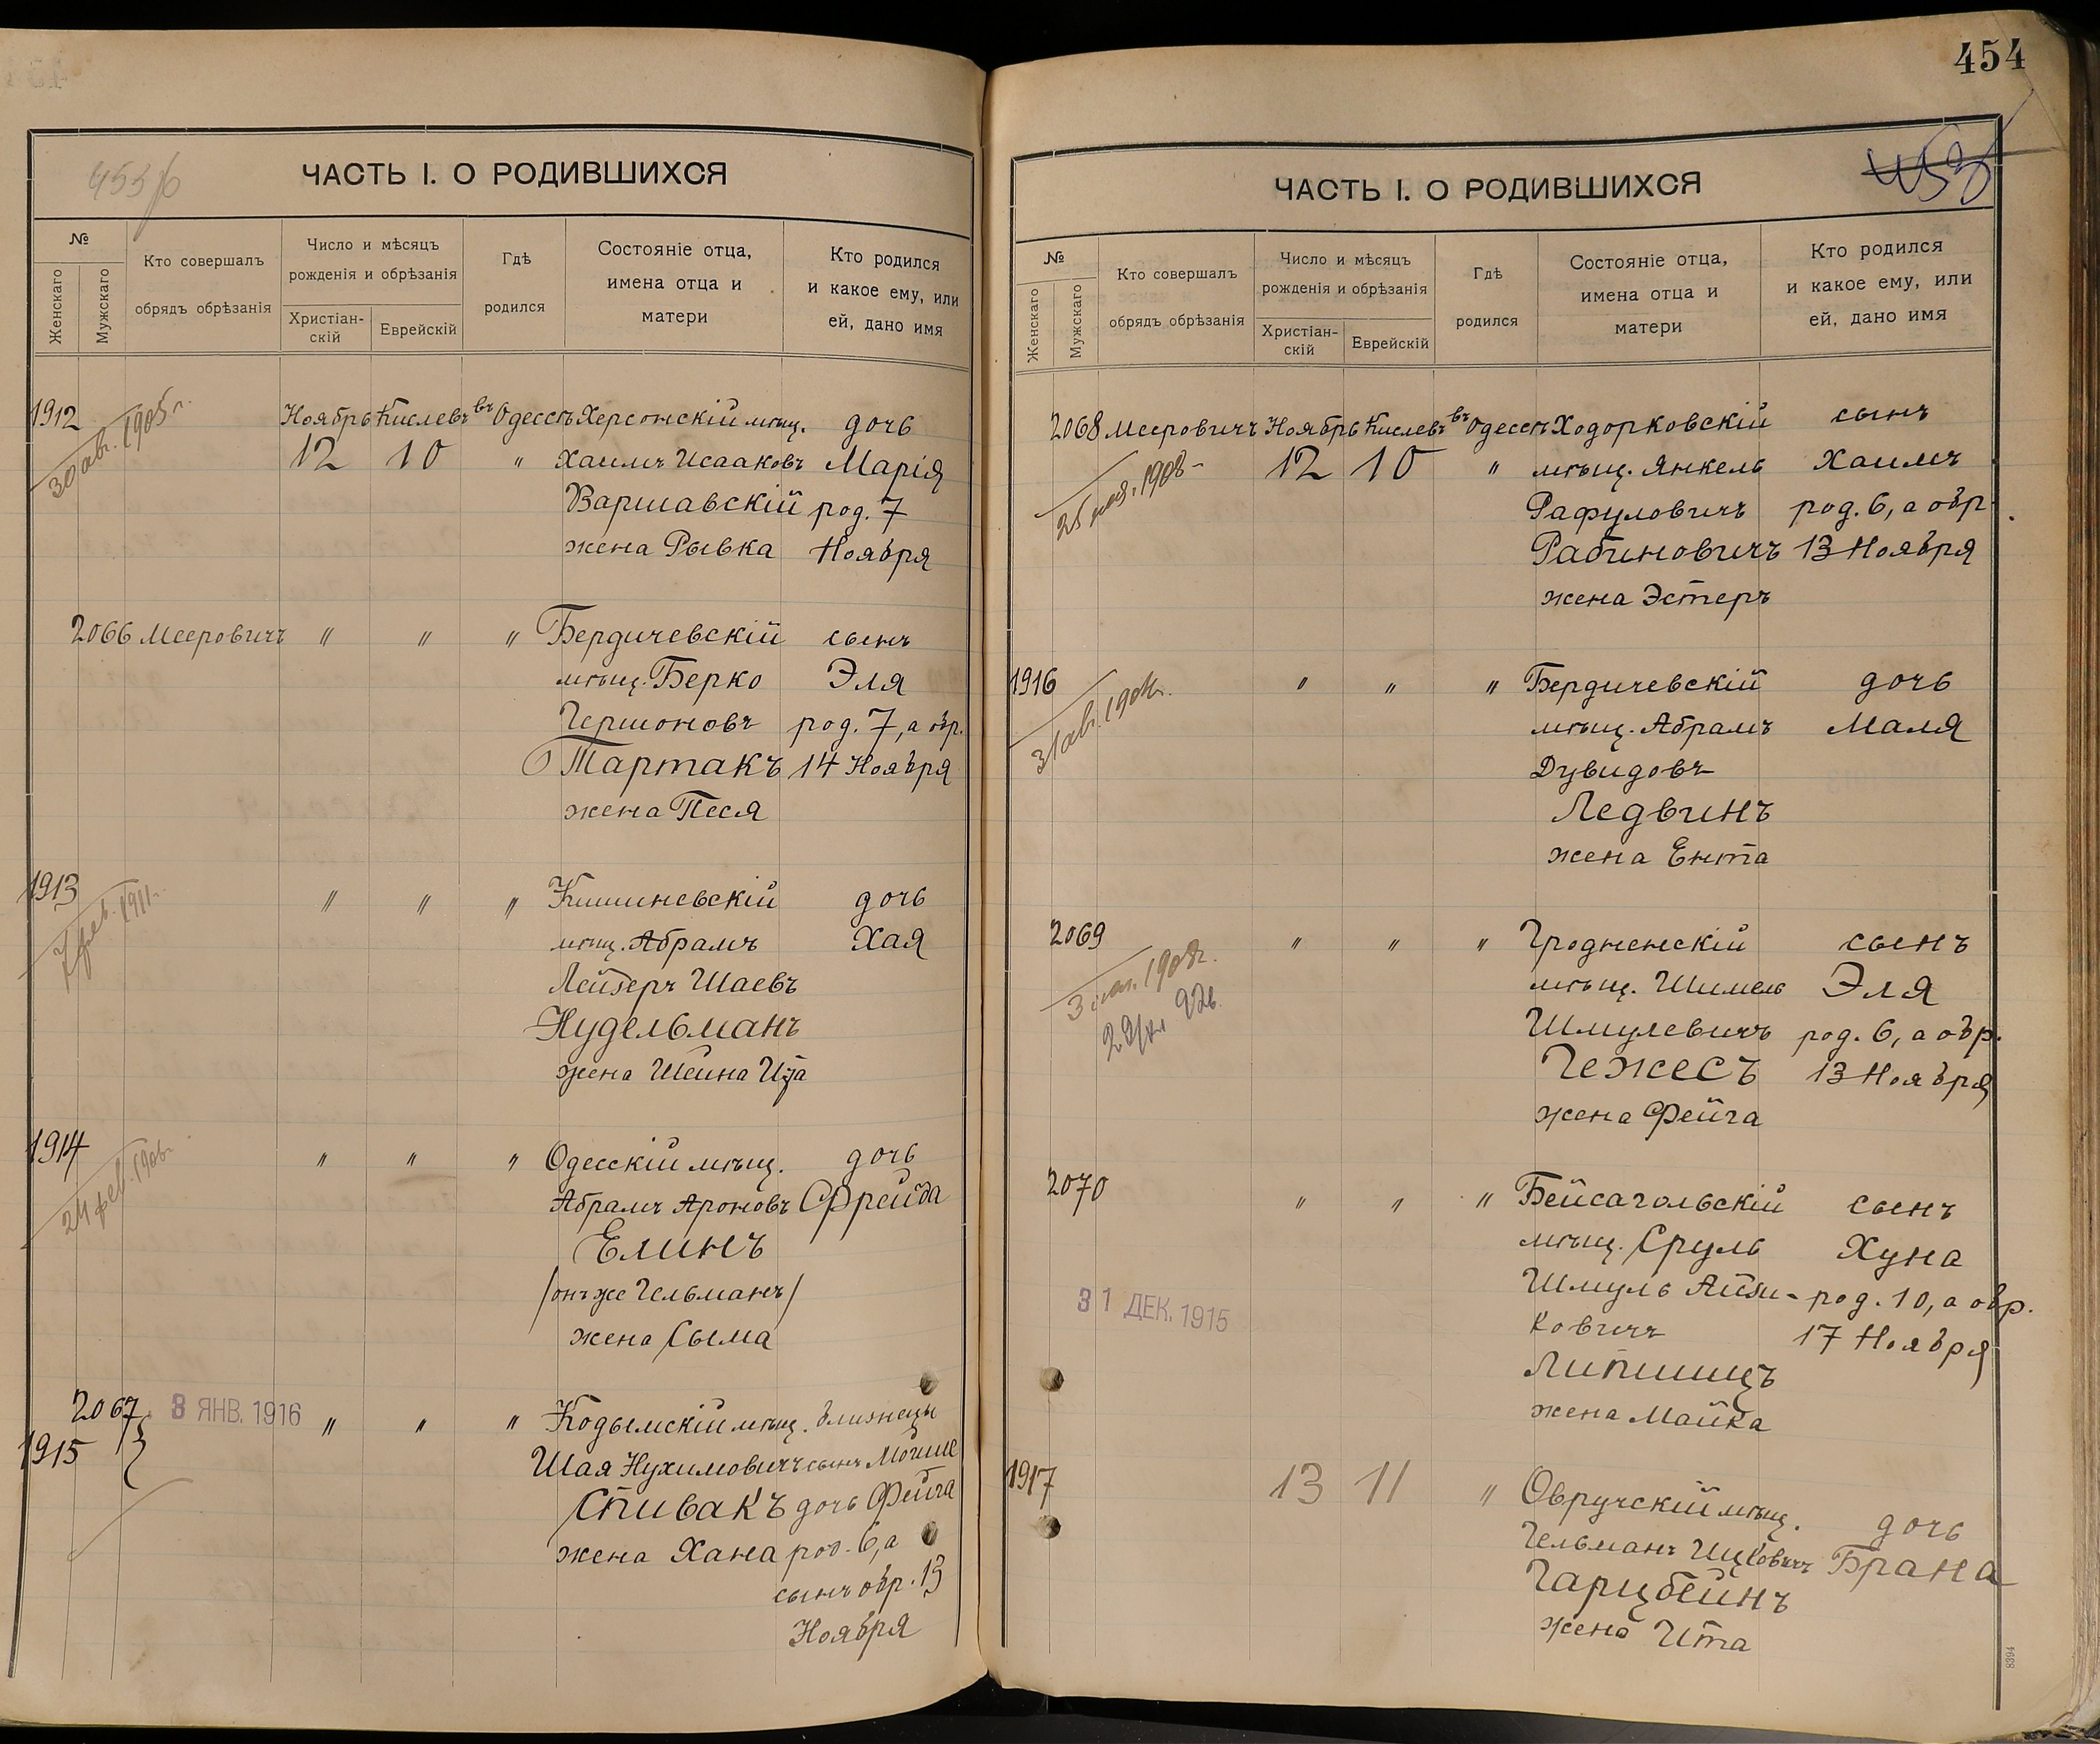 454
453/б
ЧАСТЬ I. О РОДИВШИХСЯ
№
Женскаго
Мужскаго
Кто совершалъ
обрядъ обрѣзанія
Число и мѣсяцъ
рожденія и обрѣзанія
Христіан-
скій
Еврейскій
Гдѣ
родился
Состояніе отца,
имена отца и
матери
Кто родился
и какое ему, или
ей, дано имя
1912 Ноябрь Кислевъ въ Одессѣ Херсонскій мѣщ. дочь
30 авг. 1905 г.
12 10 " Хаимъ Исааковъ Марія
Варшавскій род. 7
жена Рывка Ноября
2066 Мееровичъ " " " Бердичевскій сынъ
мѣщ. Берко Эля
Гершоновъ род. 7, а обр.
Тартакъ 14 Ноября
жена Песя
1913 " " " Кишиневскій дочь
7 фев. 1911 г.
мѣщ. Абрамъ Хая
Лейзеръ Шаевъ
Нудельманъ
жена Шейна Ита
1914 " " " Одесскій мѣщ. дочь
24 фев. 1906 г.
Абрамъ Ароновъ Фрейда
Елинъ
/онъ же Гельманъ/
жена Сыма
2067 3 ЯНВ. 1916 " " " Кодымскій мѣщ. близнецы
1915 Шая Нухимовичъ сынъ Мойше
Спивакъ дочь Фейга
жена Хана род. 6, а
сынъ обр. 13
Ноября
ЧАСТЬ I. О РОДИВШИХСЯ
№
Женскаго
Мужскаго
Кто совершалъ
обрядъ обрѣзанія
Число и мѣсяцъ
рожденія и обрѣзанія
Христіан-
скій
Еврейскій
Гдѣ
родился
Состояніе отца,
имена отца и
матери
Кто родился
и какое ему, или
ей, дано имя
2068 Мееровичъ Ноябрь Кислевъ въ Одессѣ Ходорковскій сынъ
12 10 " мѣщ. Янкель Хаимъ
1908
Рафуловичъ род. 6, а обр.
Рабиновичъ 13 Ноября
жена Эстеръ
1916 " " " Бердичевскій дочь
31 авг.
мѣщ. Абрамъ Маля
Дувидовъ
Ледвинъ
жена Ента
2069 " " " Гродненскій сынъ
1908 г.
мѣщ. Шимель Эля
Шмулевичъ род. 6, а обр.
Гежесъ 13 Ноября
жена Фейга
2070 " " " Бейсагольскій сынъ
мѣщ. Сруль Хуна
31 ДЕК. 1915
Шмуль Айзи- род. 10, а обр.
ковичъ 17 Ноября
Липшицъ
жена Майка
1917 13 11 " Овручскій мѣщ. дочь
Гельманъ Ицковичъ Брана
Гарцбейнъ
жена Ита
8394